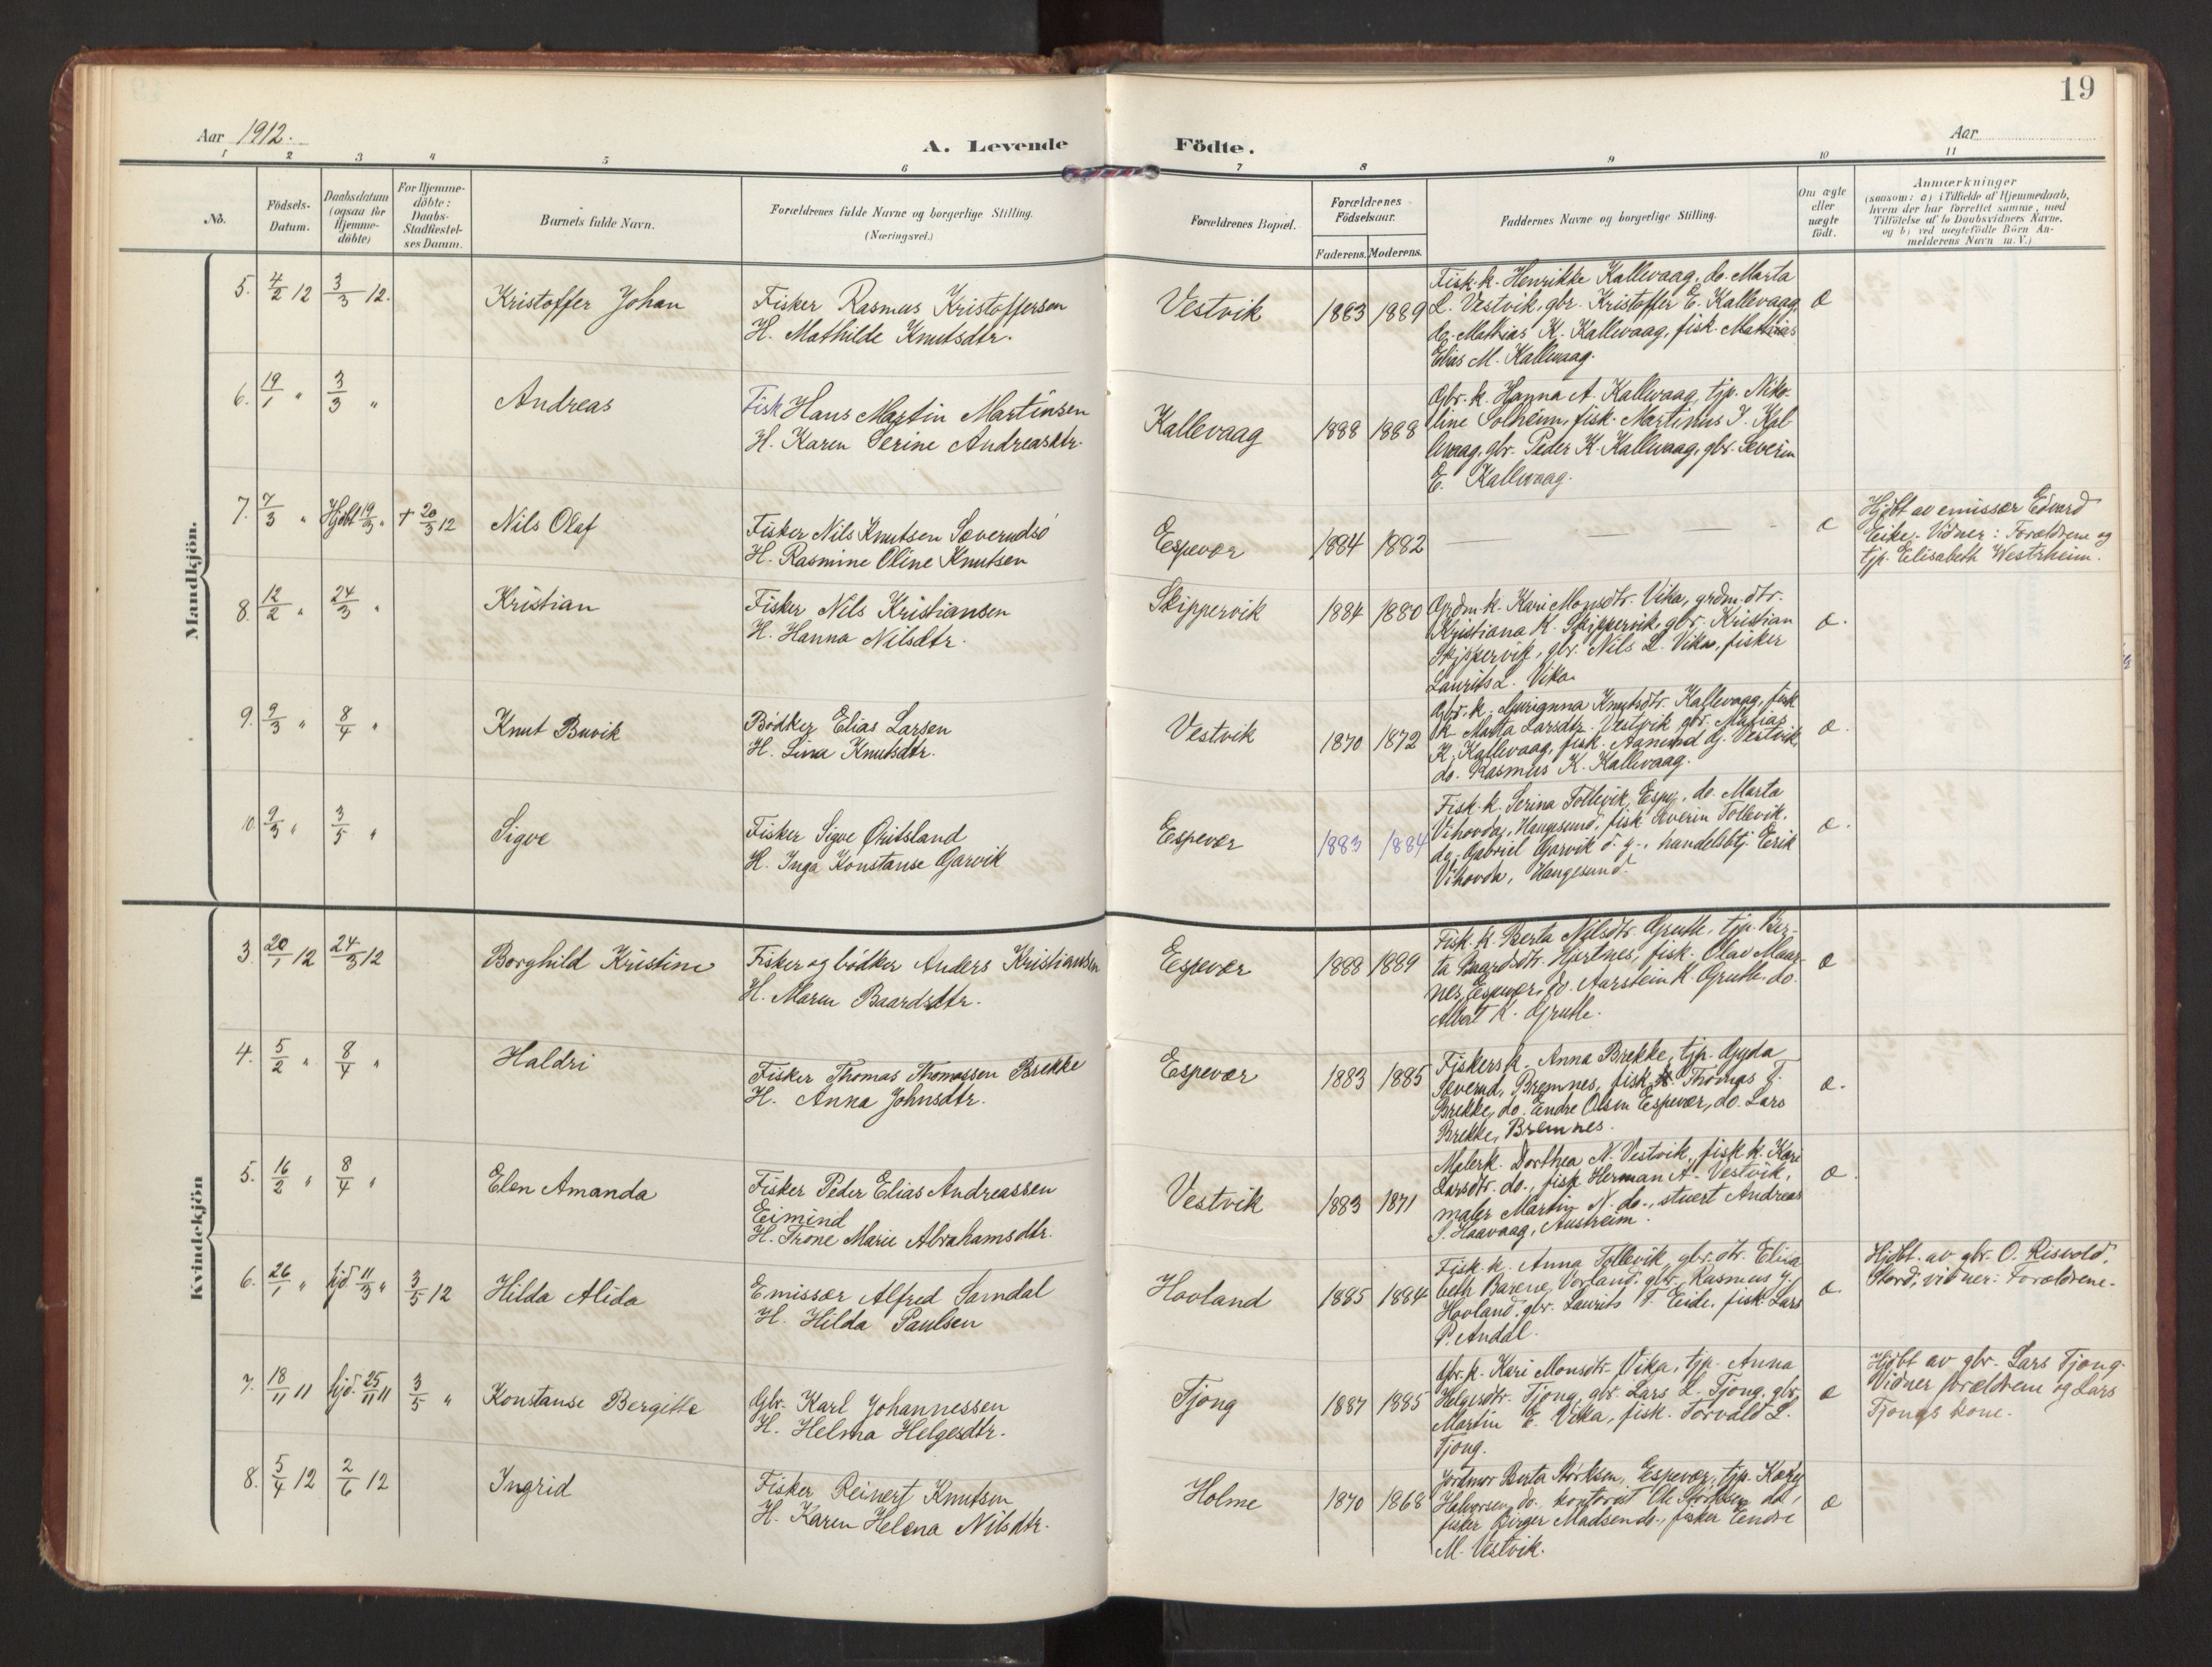 19
Aar 1912.
A. Levende Födte.
Aar
1 2 3 4 5 6 7 8 9 10 11
No.
Födsels-
Datum.
Daabsdatum
(ogsaa for
Hjemme-
döbte)
For Hjemme-
döbte:
Daabs-
Stadfæstel-
ses Datum.
Barnets fulde Navn.
Forældrenes fulde Navne og borgerlige Stilling.
(Næringsvei.)
Forældrenes Bopæl.
Forældrenes
Födselsaar.
Faderens. Moderens.
Faddernes Navne og borgerlige Stilling.
Om ægte
eller
uægte
födt.
Anmærkninger
(saasom: a) i Tilfælde af Hjemmedaab,
hvem der har forrettet samme, med
Tilföielse af to Daabsvidners Navne,
og b) ved uægtefödte Börn An-
melderens Navn m. V.)
Mandkjön.
5. 4/2 12 3/3 12.
Kristoffer Johan
Fisker Rasmus Kristoffersen
H. Mathilde Knutsdtr.
Vestvik
1883 1889
Fisk. k. Henrikke Kallevaag, do. Marta
L. Vestvik, gbr. Kristoffer E. Kallevaag,
do. Mathias K. Kallevaag, fisk. Mathias
Elias M. Kallevaag.
æ
6. 19/1 " 3/3 "
Andreas
Fisk Hans Martin Martinsen
H. Karen Serine Andreasdtr.
Kallevaag
1888 1888
Gbr. k. Hanna A. Kallevaag, tjp. Niko-
line Solheim, fisk. Martinus J. Kal
levaag, gbr. Peder K. Kallevaag, gbr. Severin
E. Kallevaag.
7. 7/3 " Hjdbt 19/3 " + 20/3 12
Nils Olaf
Fisker Nils Knutsen Sæverudsö
H. Rasmine Oline Knutsen
Espevær
1884 1882
— — —
æ
Hjdbt av emissær Edvard
Eike. Vidner: Forældrene og
tjp. Elisabeth Westrheim.
8. 12/2 " 24/3 "
Kristian
Fisker Nils Kristiansen
H. Hanna Nilsdtr.
Skippervik
1884 1880
Grdm. k. Kari Monsdtr. Vika, grdm. dtr.
Kristiana K. Skippervik, gbr. Kristian
Skippervik, gbr. Nils L. Vika, fisker
Laurits L. Vika.
æ.
9. 9/3 " 8/4 "
Knut Buvik
Bödker Elias Larsen
H. Lina Knutsdtr.
Vestvik
1870 1872
Gbr. k. Knutsdtr. Kallevaag, fisk
k. Marta Larsdtr. Vestvik gbr. Matias
K. Kallevaag, fisk. Aamund Vestvik,
do. Rasmus K. Kallevaag.
æ.
10. 9/3 " 3/5 "
Sigve
Fisker Sigve Öritsland
H. Inga Konstanse Garvik
Espevær
1883 1884
Fisk. k. Serina Tollevik, Espv., do. Marta
Vihovda, Haugesund, fisk Tollevik,
do. Gabriel Garvik handelsbtj. Erik
Vihovda, Haugesund.
æ.
Kvindekjön
3. 20/1 12 24/3 12
Borghild Kristine
Fisker og bödker Anders Kristiansen
H. Maren Baardsdtr.
Espevær
1888 1889
Fisk. k. Berta Nilsdtr. Gruth, tjp. Ber-
ta Baardsdtr. Hjertnes, fisk. Olav Maar-
nes, Espevær, do. Aarstein K. Gruth. do.
Albert K. Gruth.
æ
4. 5/2 " 8/4 "
Haldri
Fisker Thomas Thomassen Brekke
H. Anna Johnsdtr.
Espevær
1883 1885
Fiskers k. Anna Brekke, tjp. Gyda
Sæverud, Bremnes, fisk. Thomas J.
Brekke, do. Endre Olsen Espevær, do. Lars
Brekke, Bremnes.
æ.
5. 16/2 " 8/4 "
Elen Amanda
Fisker Peder Elias Andreassen
Eimind
H. Trone Marie Abrahamsdtr.
Vestvik
1883 1871
Malerk. Dorthea N. Vestvik, fisk k. Kari
Larsdtr. do., fisk Herman A. Vestvik,
maler Martin N. do., stuert Andreas
J. Haavaag, Austreim.
æ.
6. 26/1 " hjd. 11/3 " 3/5 12
Hilda Alida
Emissær Alfred Sørndal
H. Hilda Paulsen
Hovland
1885 1884
Fisk. k. Anna Tollevik, gbr. dtr. Elisa
beth Vorland, gbr. Rasmus
Hovland, gbr. Laurits T. Eide, fisk. Lars
P. Andal.
æ.
Hjdbt. av gbr. O. Risvold,
Stord, vidner: Forældrene.
7. 18/11 11 hjd. 25/11 11 3/5 "
Konstanse Bergitte
Gbr. Karl Johannessen
H. Helma Helgesdtr.
Tjong
1887 1885
Gbr. k. Kari Monsdtr. Vika, tjp. Anna
Helgesdtr. Tjong, gbr. Lars L. Tjong, gbr.
Martin E. Vika, fisk. Torvald L.
Tjong.
æ
Hjdbt av gbr. Lars Tjong.
Vidner forældrene og Lars
Tjongs kone.
8. 5/4 12 2/6 12
Ingrid
Fisker Reinert Knutsen
H. Karen Helena Nilsdtr.
Holme
1870 1868
Jordmor Berta Störksen, Espevær, tjp.
Halvorsen do., kontorist Ole Störksen do.,
fisker Birger Madsen do., fisker Endre
M. Vestvik.
æ